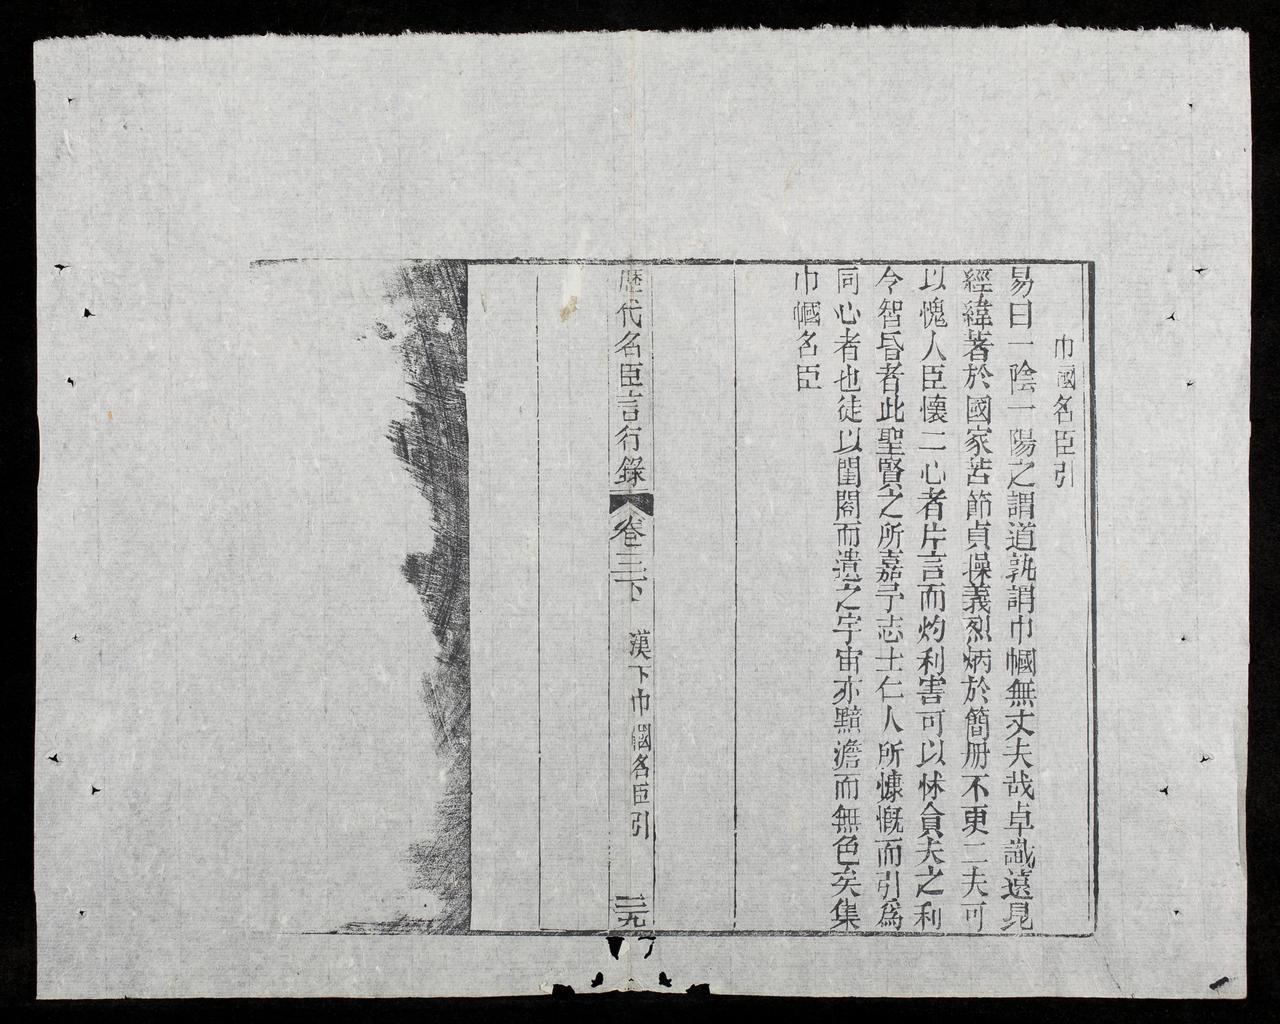 巾幗名臣引
易曰一陰一陽之謂道孰謂巾幗無丈夫哉卓識遠見
經緯著於國家苦節貞操義烈炳於簡册不更二夫可
以愧人臣懷二心者片言而灼利害可以怵貪夫之利
令智昏者此聖賢之所嘉予志士仁人所慷慨而引為
同心者也徒以閨閣而遺之宇宙亦黯澹而無色矣集
巾幗名臣
歷代名臣言行錄 卷三下 漢下巾幗名臣引 三九